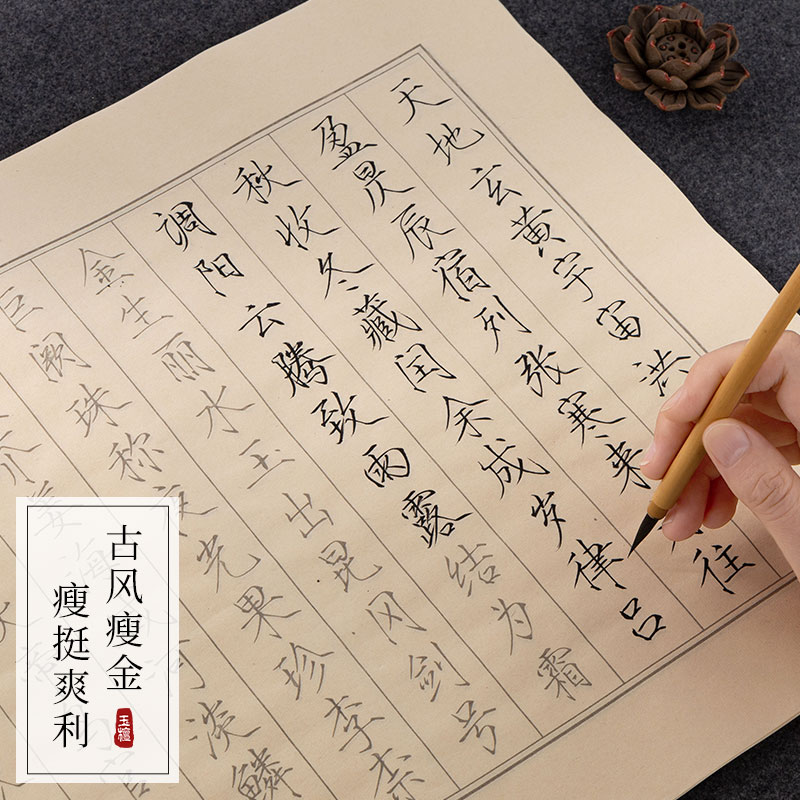 天地玄黄宇宙洪
盈昃辰宿列张寒来往
秋收冬藏闰余成岁律吕
调阳云腾致雨露结为霜
金生丽水玉出昆冈剑号
巨阙珠称夜光果珍李柰
芥姜海咸河淡鳞
帝官
古风瘦金
瘦挺爽利
玉檀